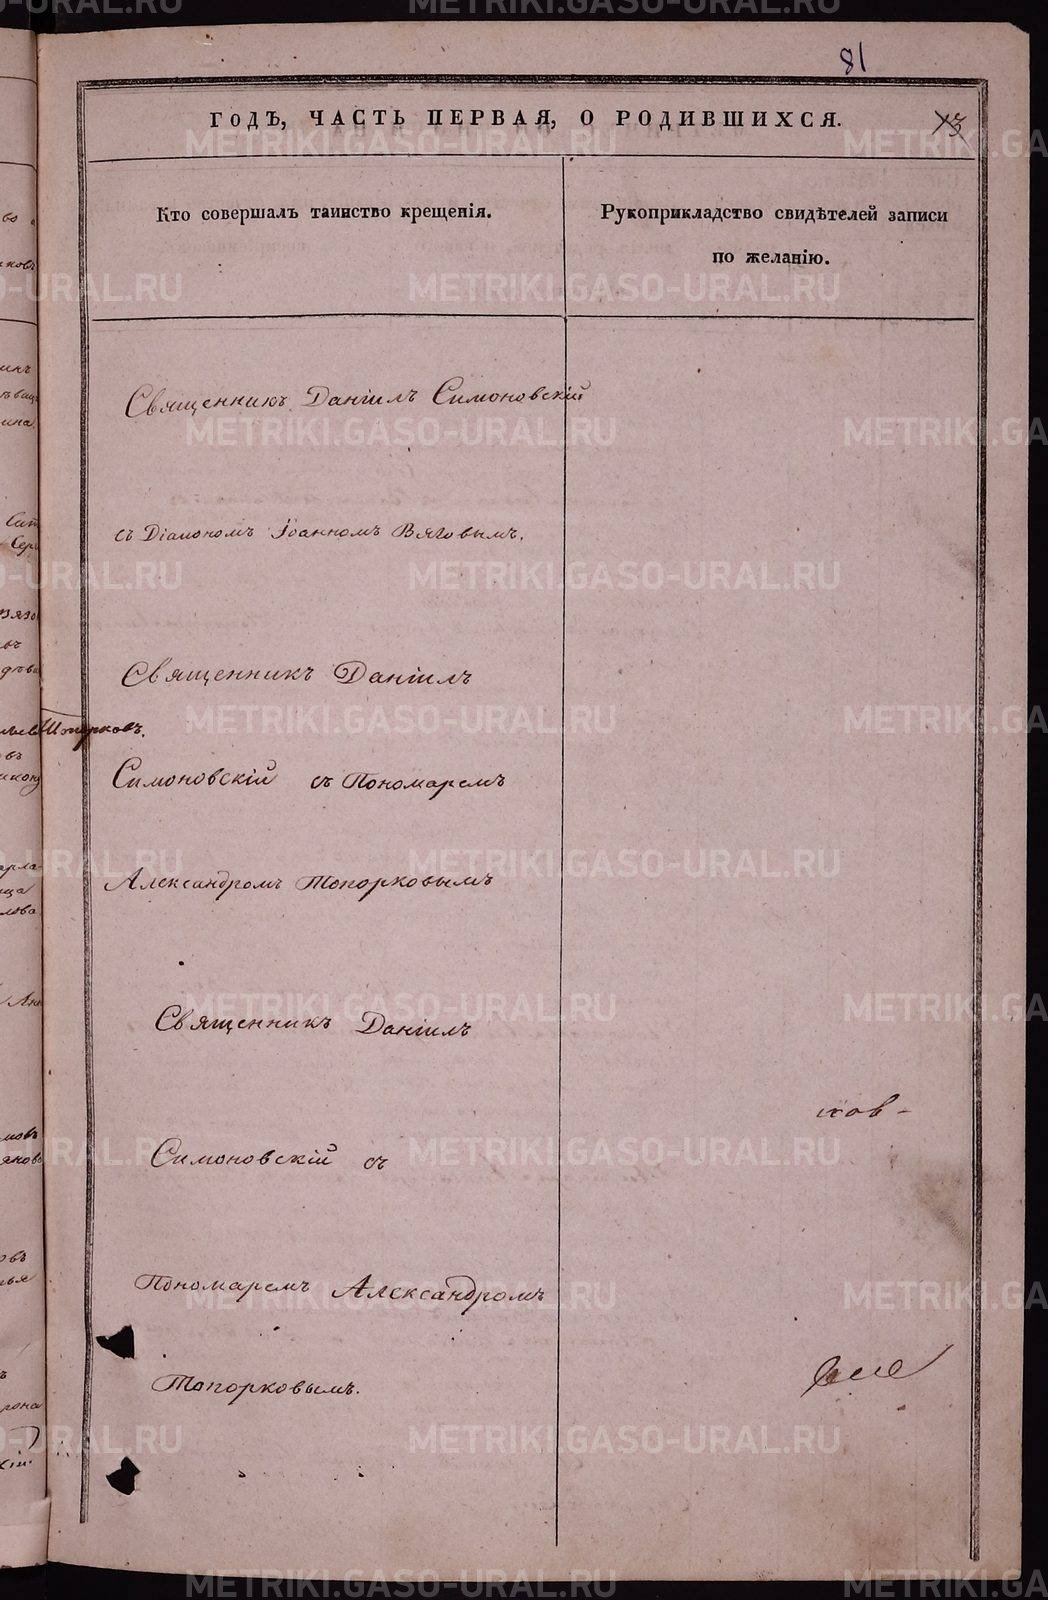 81
ГОДЪ, ЧАСТЬ ПЕРВАЯ, О РОДИВШИХСЯ.
73
Кто совершалъ таинство крещенія.
Рукоприкладство свидѣтелей записи
по желанію.
Священникъ Даніилъ Симоновскій
съ Діакономъ Іоанномъ Вяговымъ.
Священникъ Даніилъ
Топорковъ.
Симоновскій съ Пономаремъ
Александромъ Топорковымъ
Священникъ Даніилъ
ков-
Симоновскій съ
Пономаремъ Александромъ
Топорковымъ.
METRIKI.GASO-URAL.RU